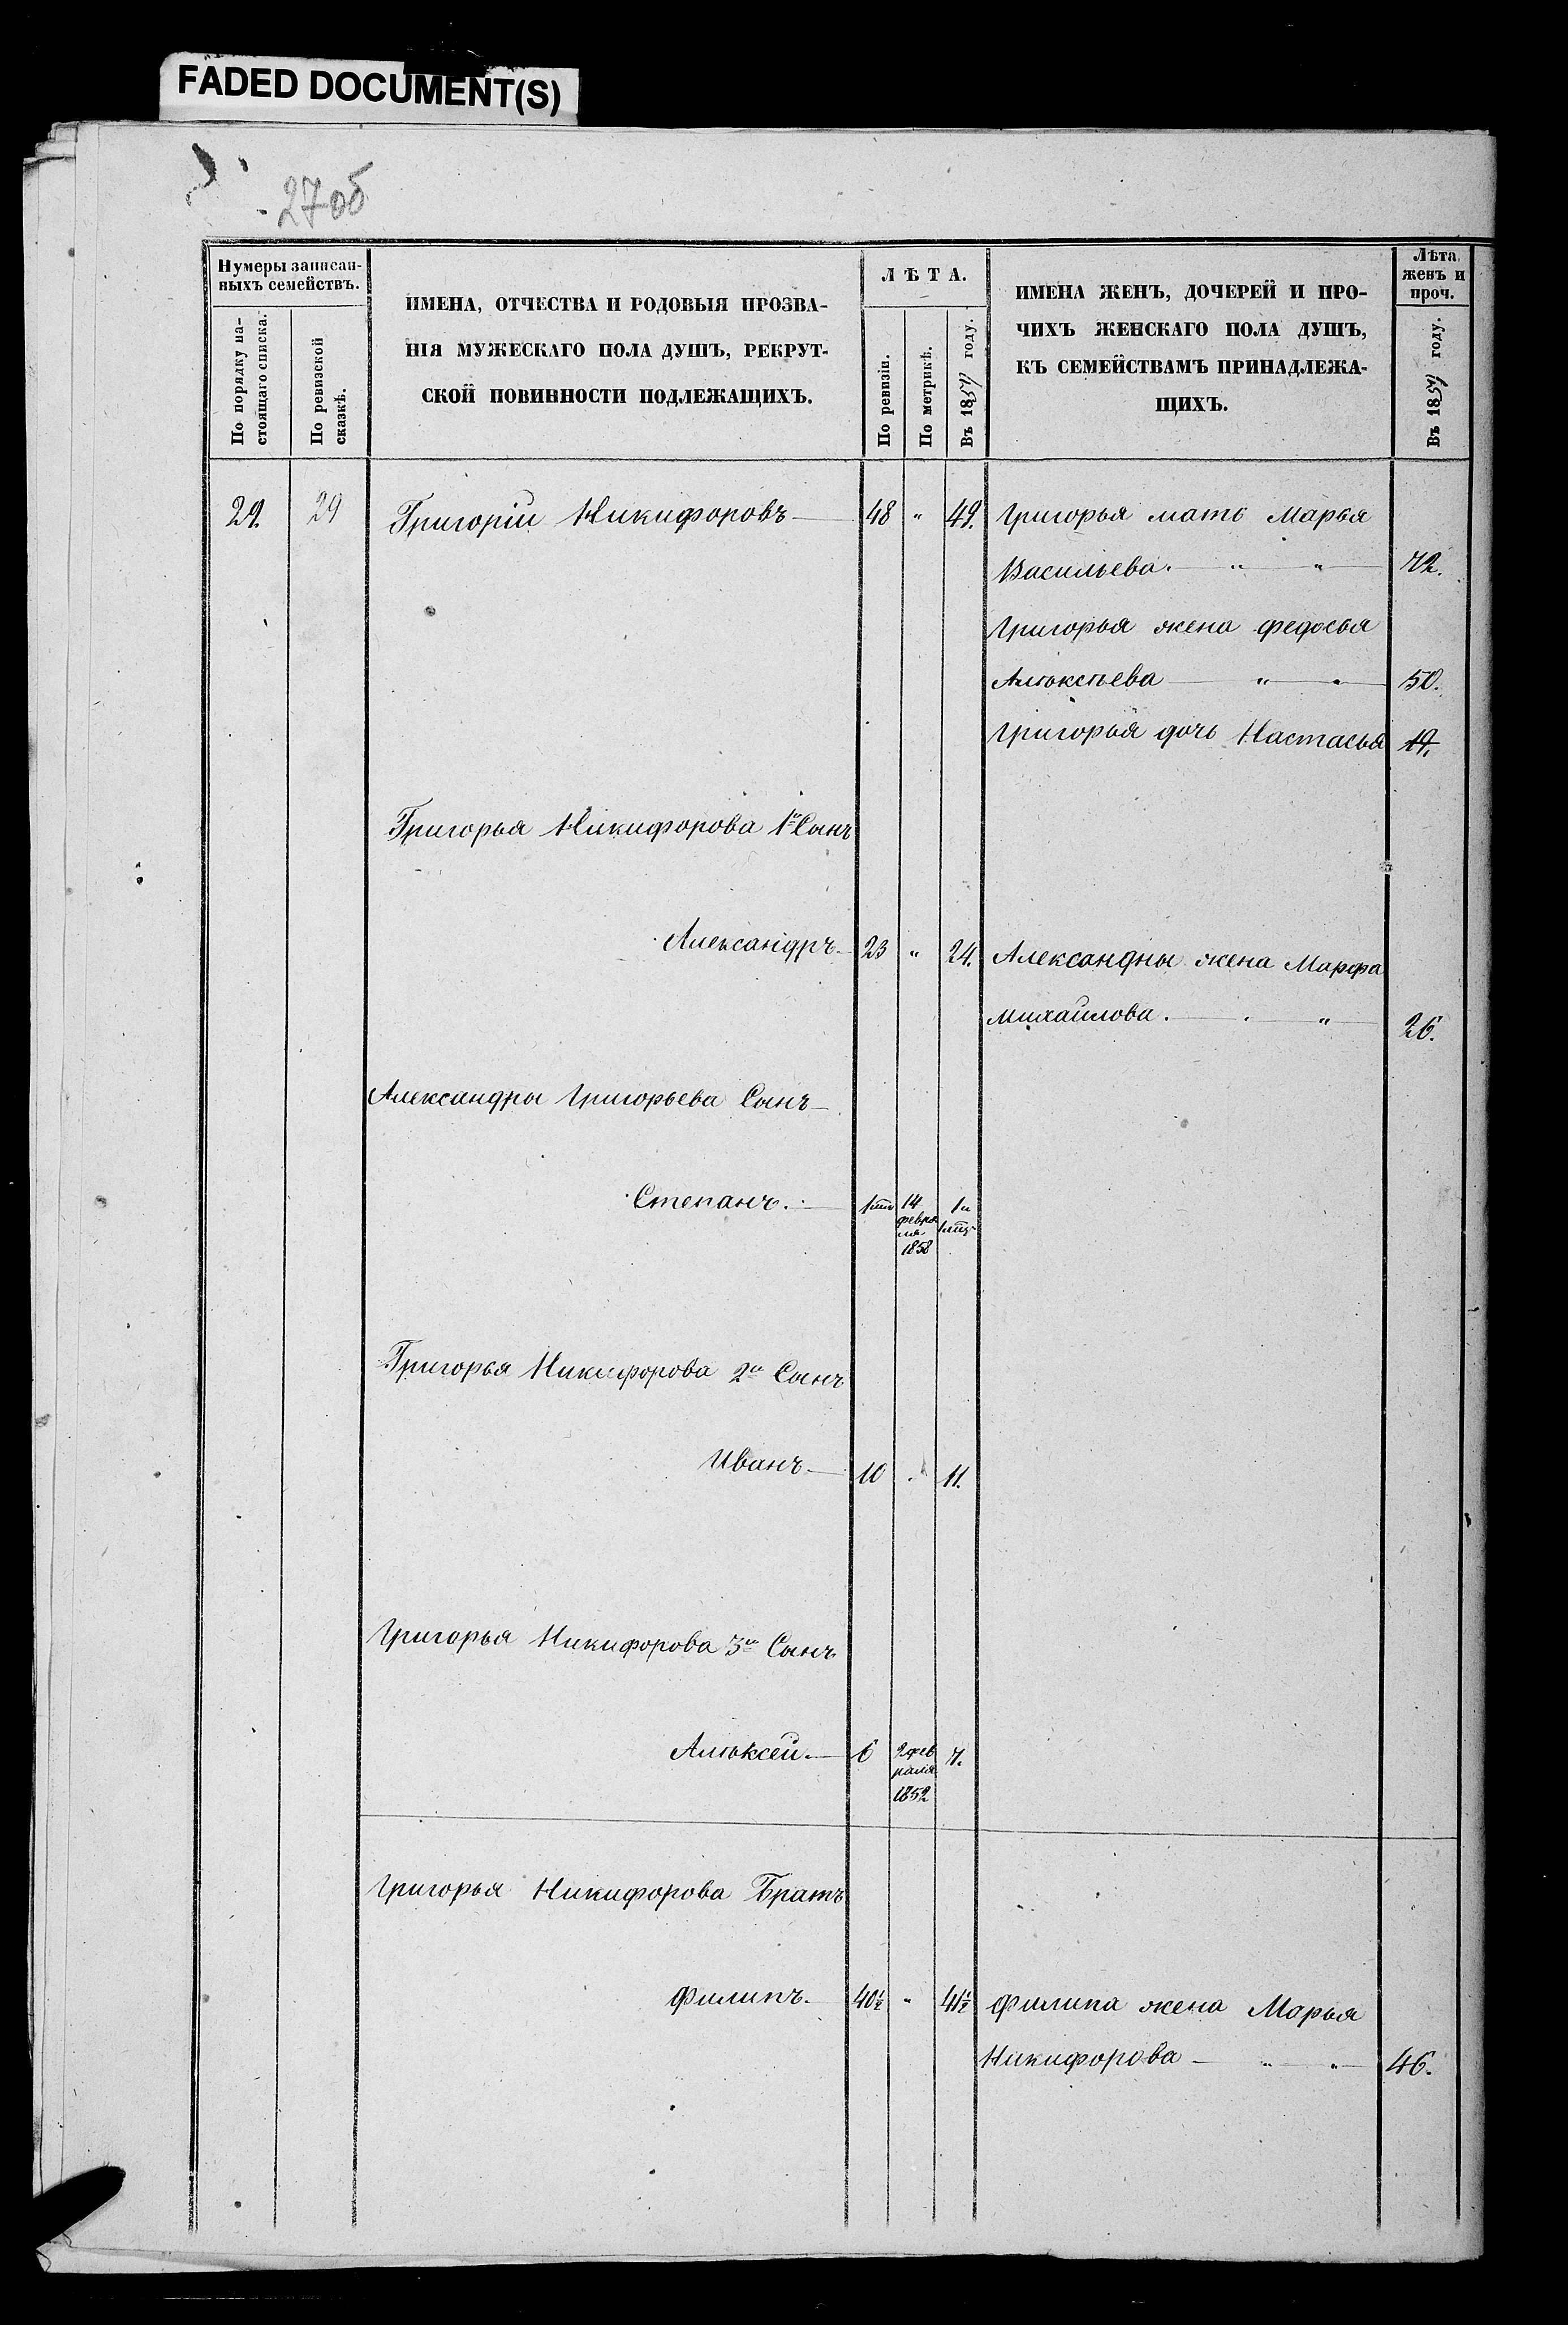 FADED DOCUMENT(S)
27об
Нумеры записан-
ныхъ семействъ.
По порядку на-
стоящаго списка.
По ревизской
сказкѣ.
ИМЕНА, ОТЧЕСТВА И РОДОВЫЯ ПРОЗВА-
НІЯ МУЖЕСКАГО ПОЛА ДУШЪ, РЕКРУТ-
СКОЙ ПОВИННОСТИ ПОДЛЕЖАЩИХЪ.
ЛѢТА.
По ревизіи.
По метрикѣ.
Въ 1859 году.
ИМЕНА ЖЕНЪ, ДОЧЕРЕЙ И ПРО-
ЧИХЪ ЖЕНСКАГО ПОЛА ДУШЪ,
КЪ СЕМЕЙСТВАМЪ ПРИНАДЛЕЖА-
ЩИХЪ.
Лѣта
женъ и
проч.
Въ 1859 году.
29. 29 Григоріи Никифоровъ 48 " 49. Григорья мать Марья
Васильева. " " 72.
Григорья жена федосья
Алѣксѣева " " 50.
Григорья дочь Настасья 19.
Григорья Никифорова 1й Сынъ
Александръ 23 " 24. Александры жена Марфа
михаилова. " 26.
Александры Григорьева Сынъ
Степанъ. 14 февра
ля
1858
Григорья Никифорова 2й Сынъ
Иванъ 10 " 11.
Григорья Никифорова 3й Сынъ
Алѣксеи. 6 2 фев
раля
1852 7.
Григорья Никифорова Братъ
Филипъ. 40½ " 41½ Филипа жена Марья
Никифорова " " 46.